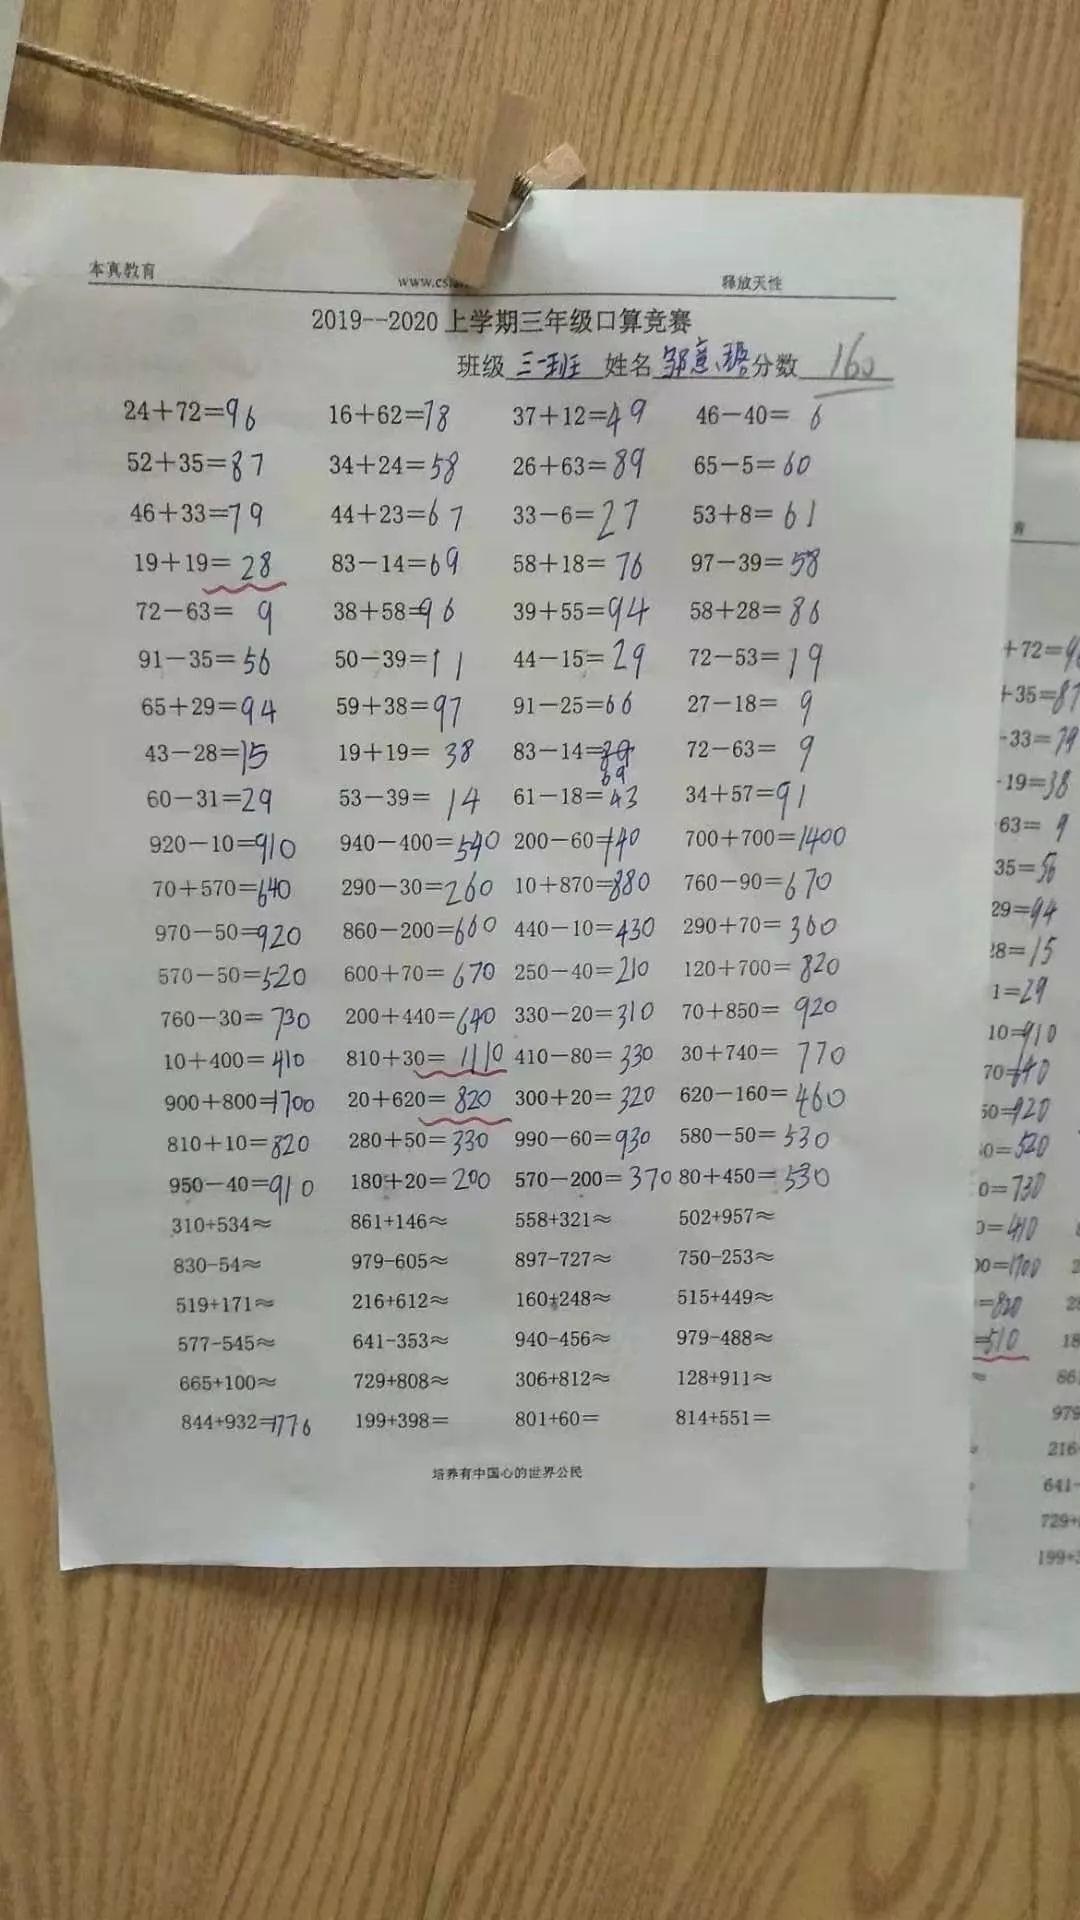 本真教育 释放天性
2019--2020 上学期三年级口算竞赛
班级 三一班 姓名 分数 160
24+72=96 16+62=78 37+12=49 46-40=6
52+35=87 34+24=58 26+63=89 65-5=60
46+33=79 44+23=67 33-6=27 53+8=61
19+19=28 83-14=69 58+18=76 97-39=58
72-63=9 38+58=96 39+55=94 58+28=86
91-35=56 50-39=11 44-15=29 72-53=19
65+29=94 59+38=97 91-25=66 27-18=9
43-28=15 19+19=38 83-14=69 72-63=9
60-31=29 53-39=14 61-18=43 34+57=91
920-10=910 940-400=540 200-60=140 700+700=1400
70+570=640 290-30=260 10+870=880 760-90=670
970-50=920 860-200=660 440-10=430 290+70=360
570-50=520 600+70=670 250-40=210 120+700=820
760-30=730 200+440=640 330-20=310 70+850=920
10+400=410 810+30=1110 410-80=330 30+740=770
900+800=1700 20+620=820 300+20=320 620-160=460
810+10=820 280+50=330 990-60=930 580-50=530
950-40=910 180+20=200 570-200=370 80+450=530
310+534≈ 861+146≈ 558+321≈ 502+957≈
830-54≈ 979-605≈ 897-727≈ 750-253≈
519+171≈ 216+612≈ 160+248≈ 515+449≈
577-545≈ 641-353≈ 940-456≈ 979-488≈
665+100≈ 729+808≈ 306+812≈ 128+911≈
844+932=1776 199+398= 801+60= 814+551=
培养有中国心的世界公民
+72=
+35=87
-33=79
-19=38
63=9
35=56
29=94
28=15
1=29
10=910
70=640
50=920
0=520
0=730
0=410
00=1700
=820
=510
861
979
216
641-
729+
199+3